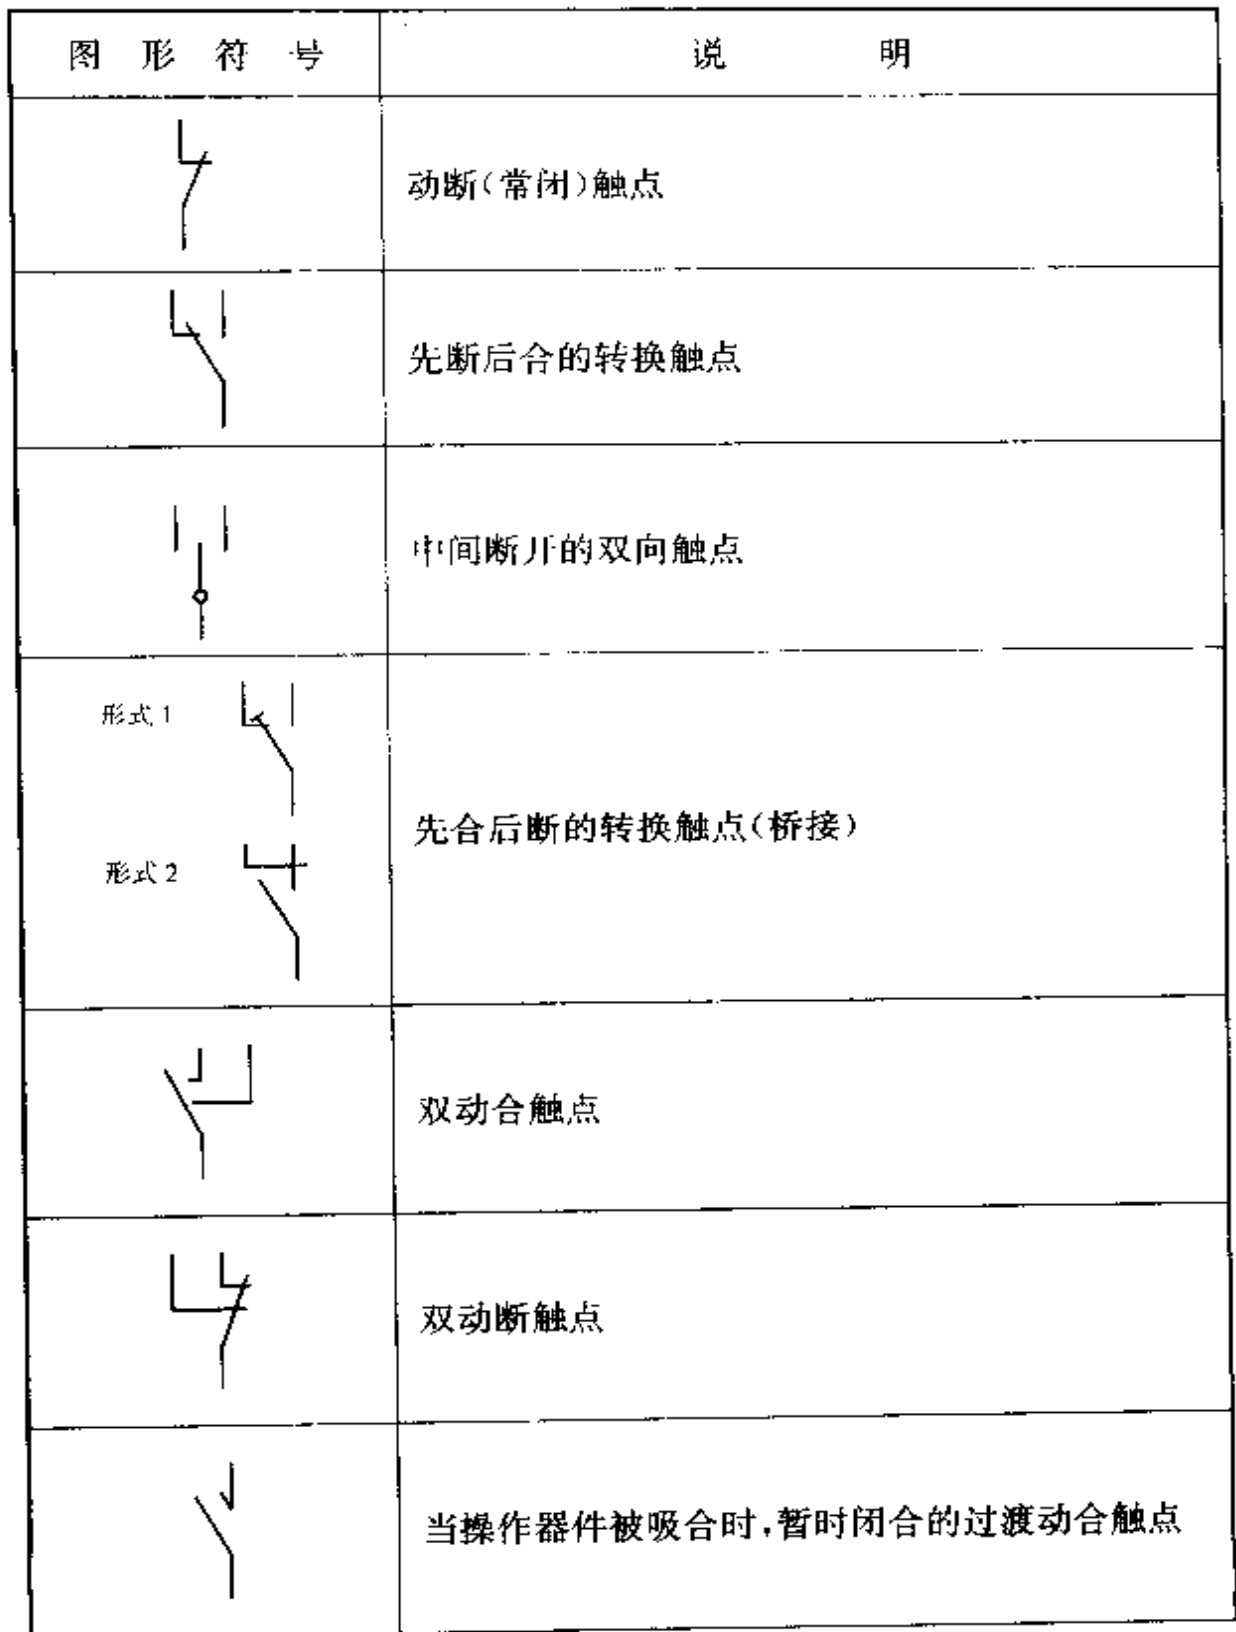 图形符号 说明
动断(常闭)触点
先断后合的转换触点
中间断开的双向触点
形式1
先合后断的转换触点(桥接)
形式2
双动合触点
双动断触点
当操作器件被吸合时,暂时闭合的过渡动合触点